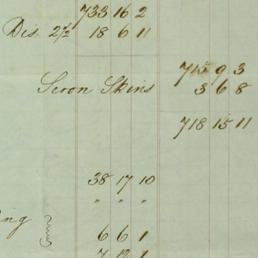 733 16 2
Dis. 2½ 18 6 11
715 9 3
Seron Skins 3 6 8
718 15 11
38 17 10
" " "
ing
6 6 1
7 12 1